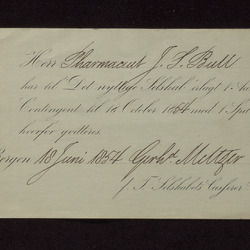 Herr Pharmaceut J. S. Bull
har til Det nyttige Selskab erlagt 1
Contingent til 19 October 1854 med 1
hvorfor qvitteres.
Bergen 18 Juni 1854 Gerh. Meltzer
f. T. Selskabets Casserer